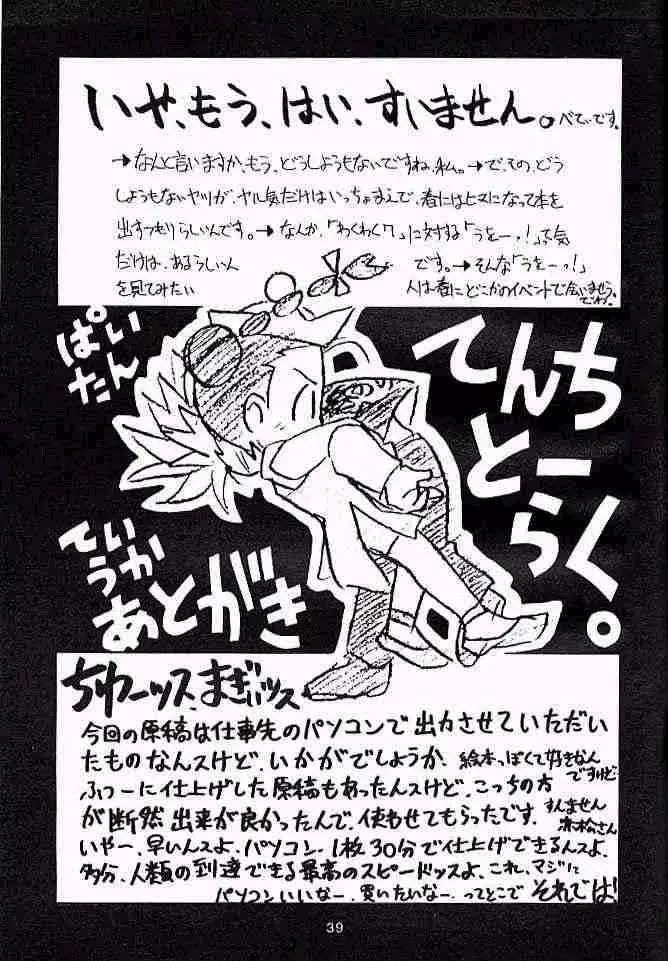 いや、もう、はい、すいません。べてぃです。
→なんと言いますか、もう、どうしようもないですね、私。→で、その、どう
しようもないヤツが、ヤル気だけはいっちょまえで、春にはヒマになって本を
出すつもりらしいんです。→なんか、「わくわく7」に対する「うをーっ!」って気
だけは、あるらしいん です。→そんな「うをーっ!」
を見てみたい 人は春にどこかのイベントで会いませう。
でわ。
ぱい
たん
てんち
とーく
らく。
ていうか
あとがき
ちゅーッス、まぎぃッス
今回の原稿は仕事先のパソコンで出力させていただい
たものなんスけど、いかがでしょうか、絵本っぽくて好きなん
ですけど
ふつーに仕上げした原稿もあったんスけど、こっちの方
が断然出来が良かったんで、使わせてもらったです。すんません
赤松さん
いやー、早いんスよ、パソコン。1枚30分で仕上げできるんスよ。
多分、人類の到達できる最高のスピードッスよ、これ、マジに
パソコンいいなー、買いたいなー、ってとこで それでは!
39